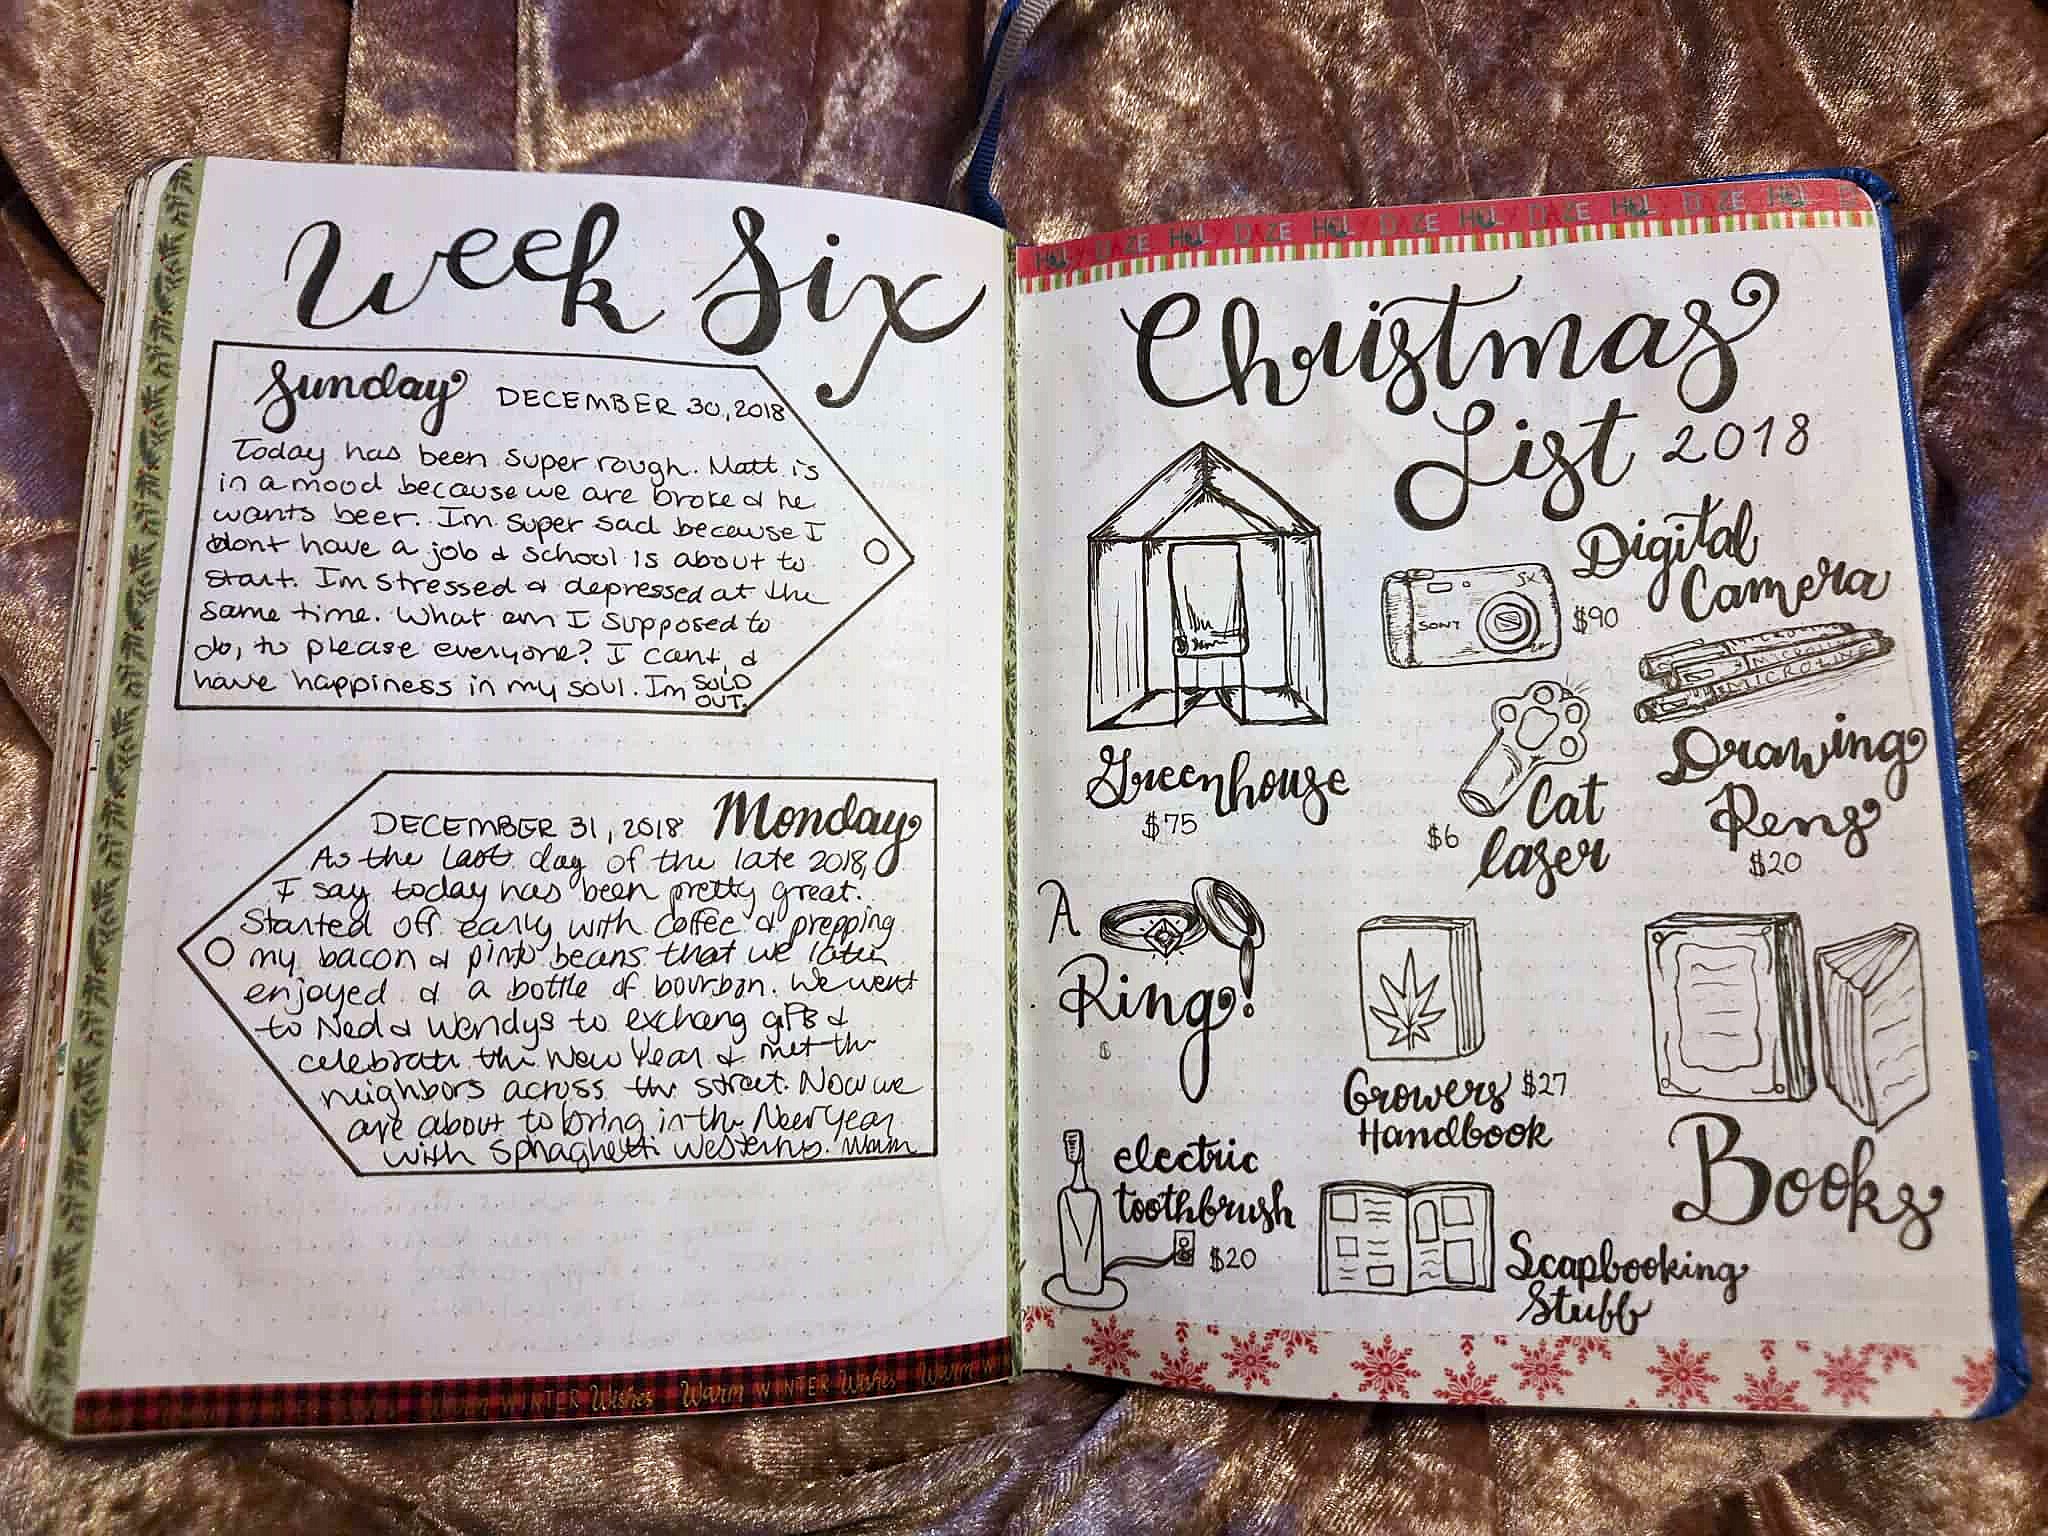 Week Six
Sunday DECEMBER 30, 2018
Today has been super rough. Matt is
in a mood because we are broke & he
wants beer. Im super sad because I
dont have a job & school is about to
start. Im stressed & depressed at the
same time. What am I supposed to
do, to please everyone? I cant, &
have happiness in my soul. Im SOLD
OUT.
DECEMBER 31, 2018 Monday
As the last day of the late 2018,
I say today has been pretty great.
Started off early with coffee & prepping
my bacon & pinto beans that we later
enjoyed & a bottle of bourbon. We went
to Ned & Wendys to exchang gifts &
celebrate the New Year & met the
neighbors across the street. Now we
are about to bring in the New Year
with Sphaghetti Westerns.
Warm WINTER Wishes Warm WINTER Wishes Warm WIN
Christmas
List 2018
Greenhouse
$75
SONY
5x
$90
Digital
Camera
MICROLINE
MICROLINE
MICROLINE
Drawing
Pens
$20
$6
Cat
laser
A
Ring!
$
Growers $27
Handbook
Books
electric
toothbrush
$20
Scapbooking
Stuff